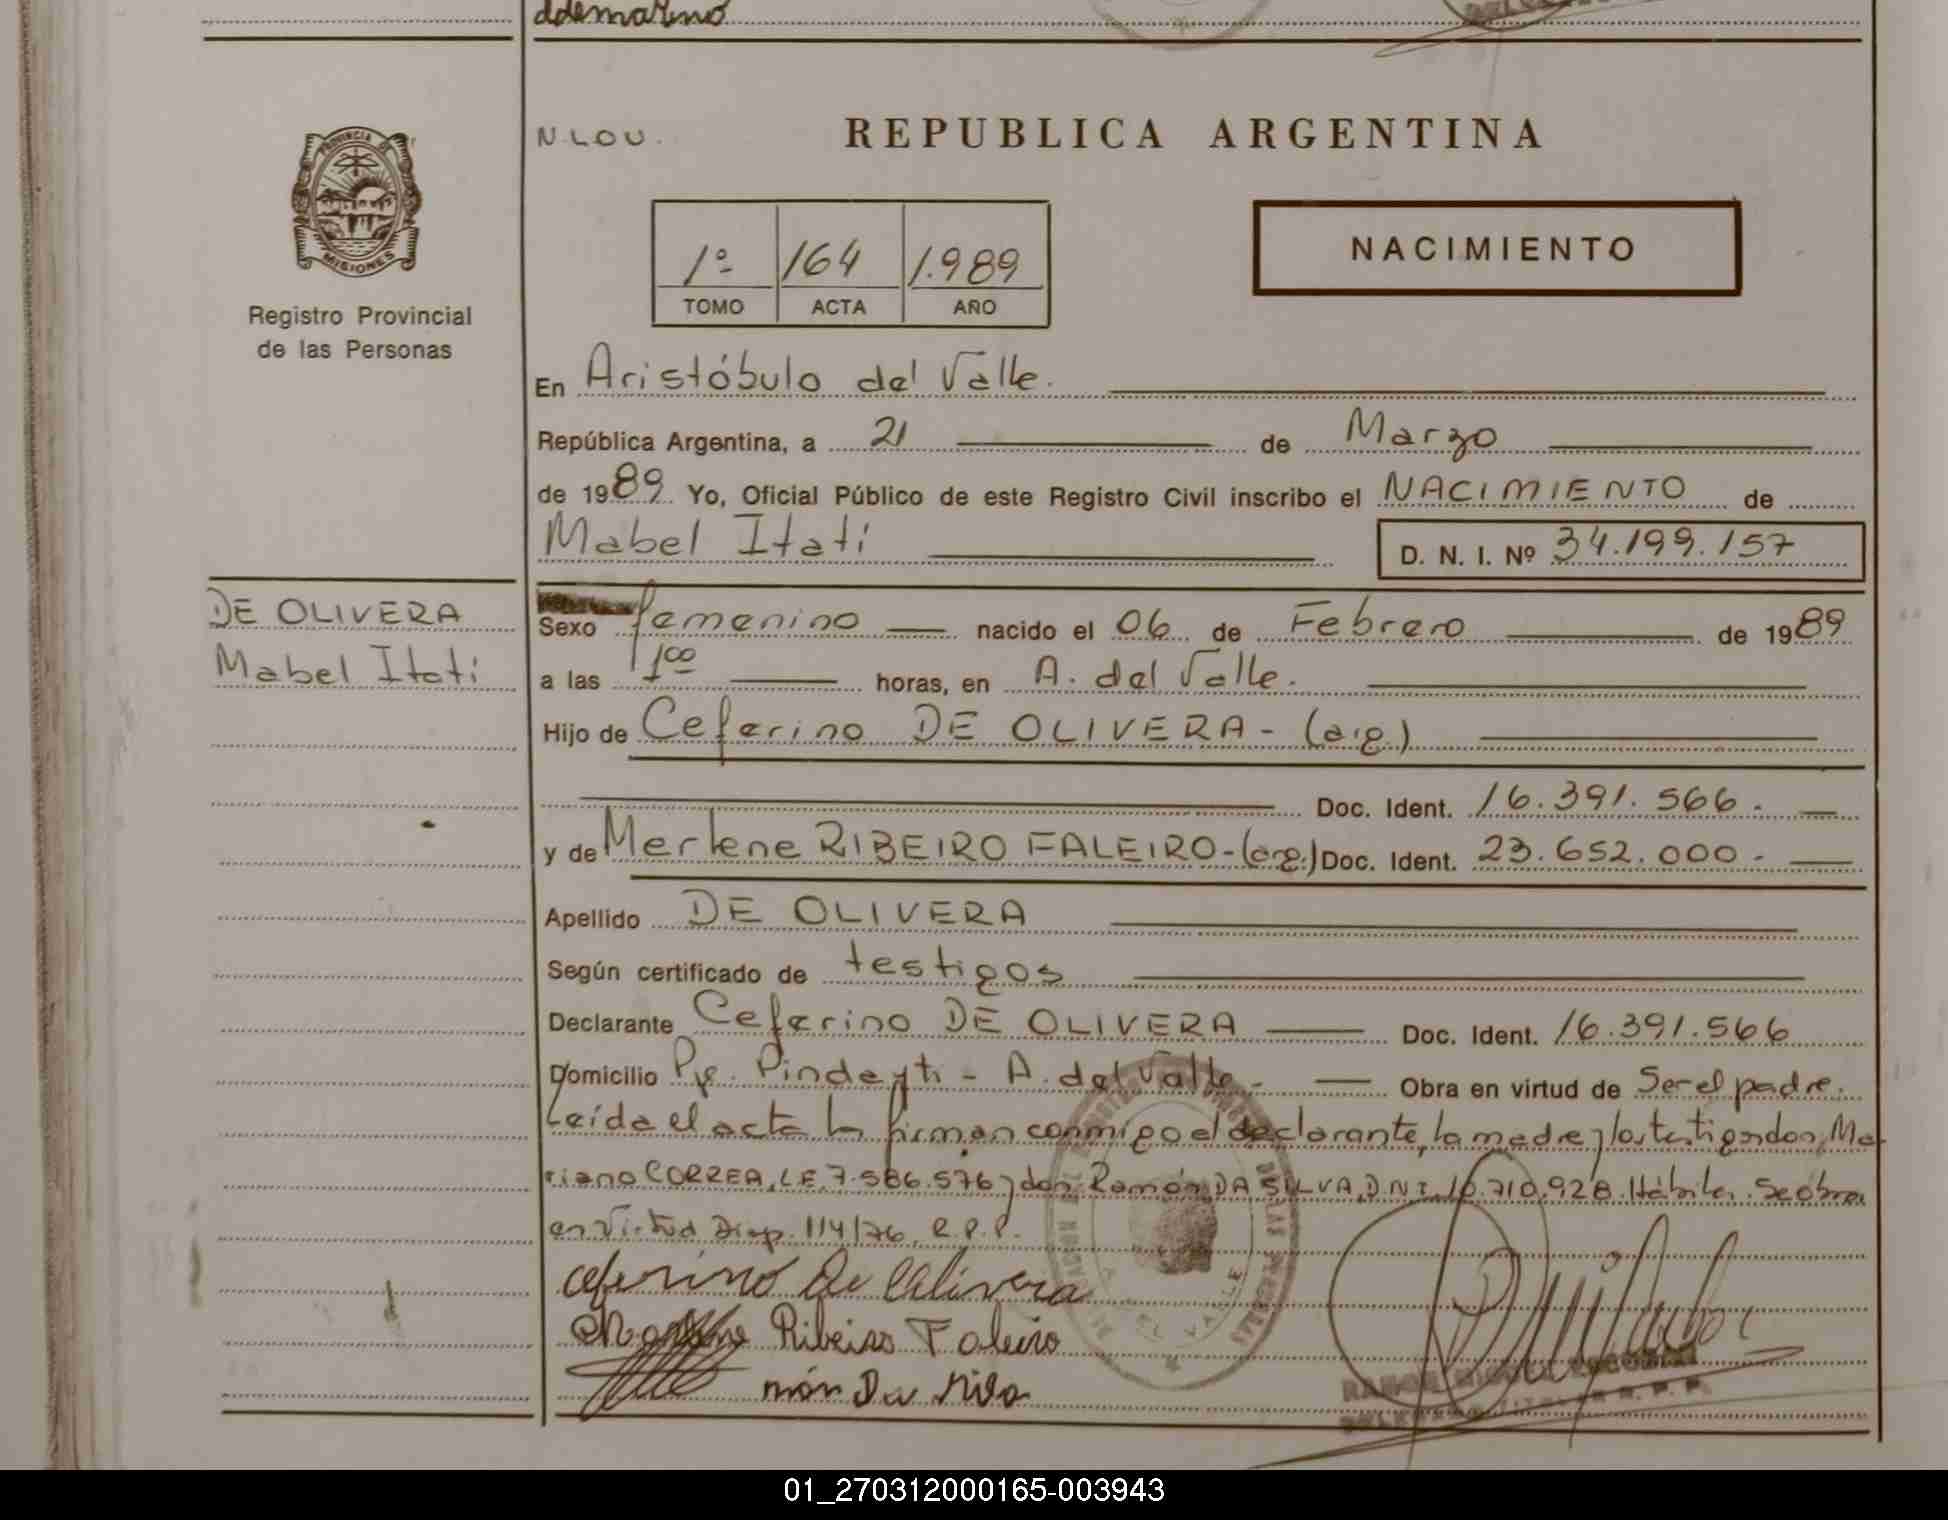 ddemarino
PROVINCIA DE
MISIONES
Registro Provincial
de las Personas
N.L.O.U.
REPUBLICA ARGENTINA
1º 164 1.989
TOMO ACTA AÑO
NACIMIENTO
En Aristóbulo del Valle.
República Argentina, a 21 de Marzo
de 1989 Yo, Oficial Público de este Registro Civil inscribo el NACIMIENTO de
Mabel Itatí D. N. I. Nº 34.199.157
DE OLIVERA
Mabel Itatí
Sexo femenino nacido el 06 de Febrero de 1989
a las 1⁰⁰ horas, en A. del Valle.
Hijo de Ceferino DE OLIVERA - (arg.)
Doc. Ident. 16.391.566.
y de Merlene RIBEIRO FALEIRO-(arg.) Doc. Ident. 23.652.000.
Apellido DE OLIVERA
Según certificado de testigos
Declarante Ceferino DE OLIVERA Doc. Ident. 16.391.566
Domicilio Pje. Pindayti - A. del Valle - Obra en virtud de Ser el padre.
Leída el acta la firman conmigo el declarante, la madre y los testigos don Ma
riano CORREA, L.E. 7.586.576 y don Ramón DA SILVA, D.N.I. 10.710.928. Hábiles. Se obra
en Virtud Disp. 114/76, R.P.P.
Ceferino De Olivera
Ribeiro Faleiro
món Da Silva
A. DEL VALLE
01_270312000165-003943